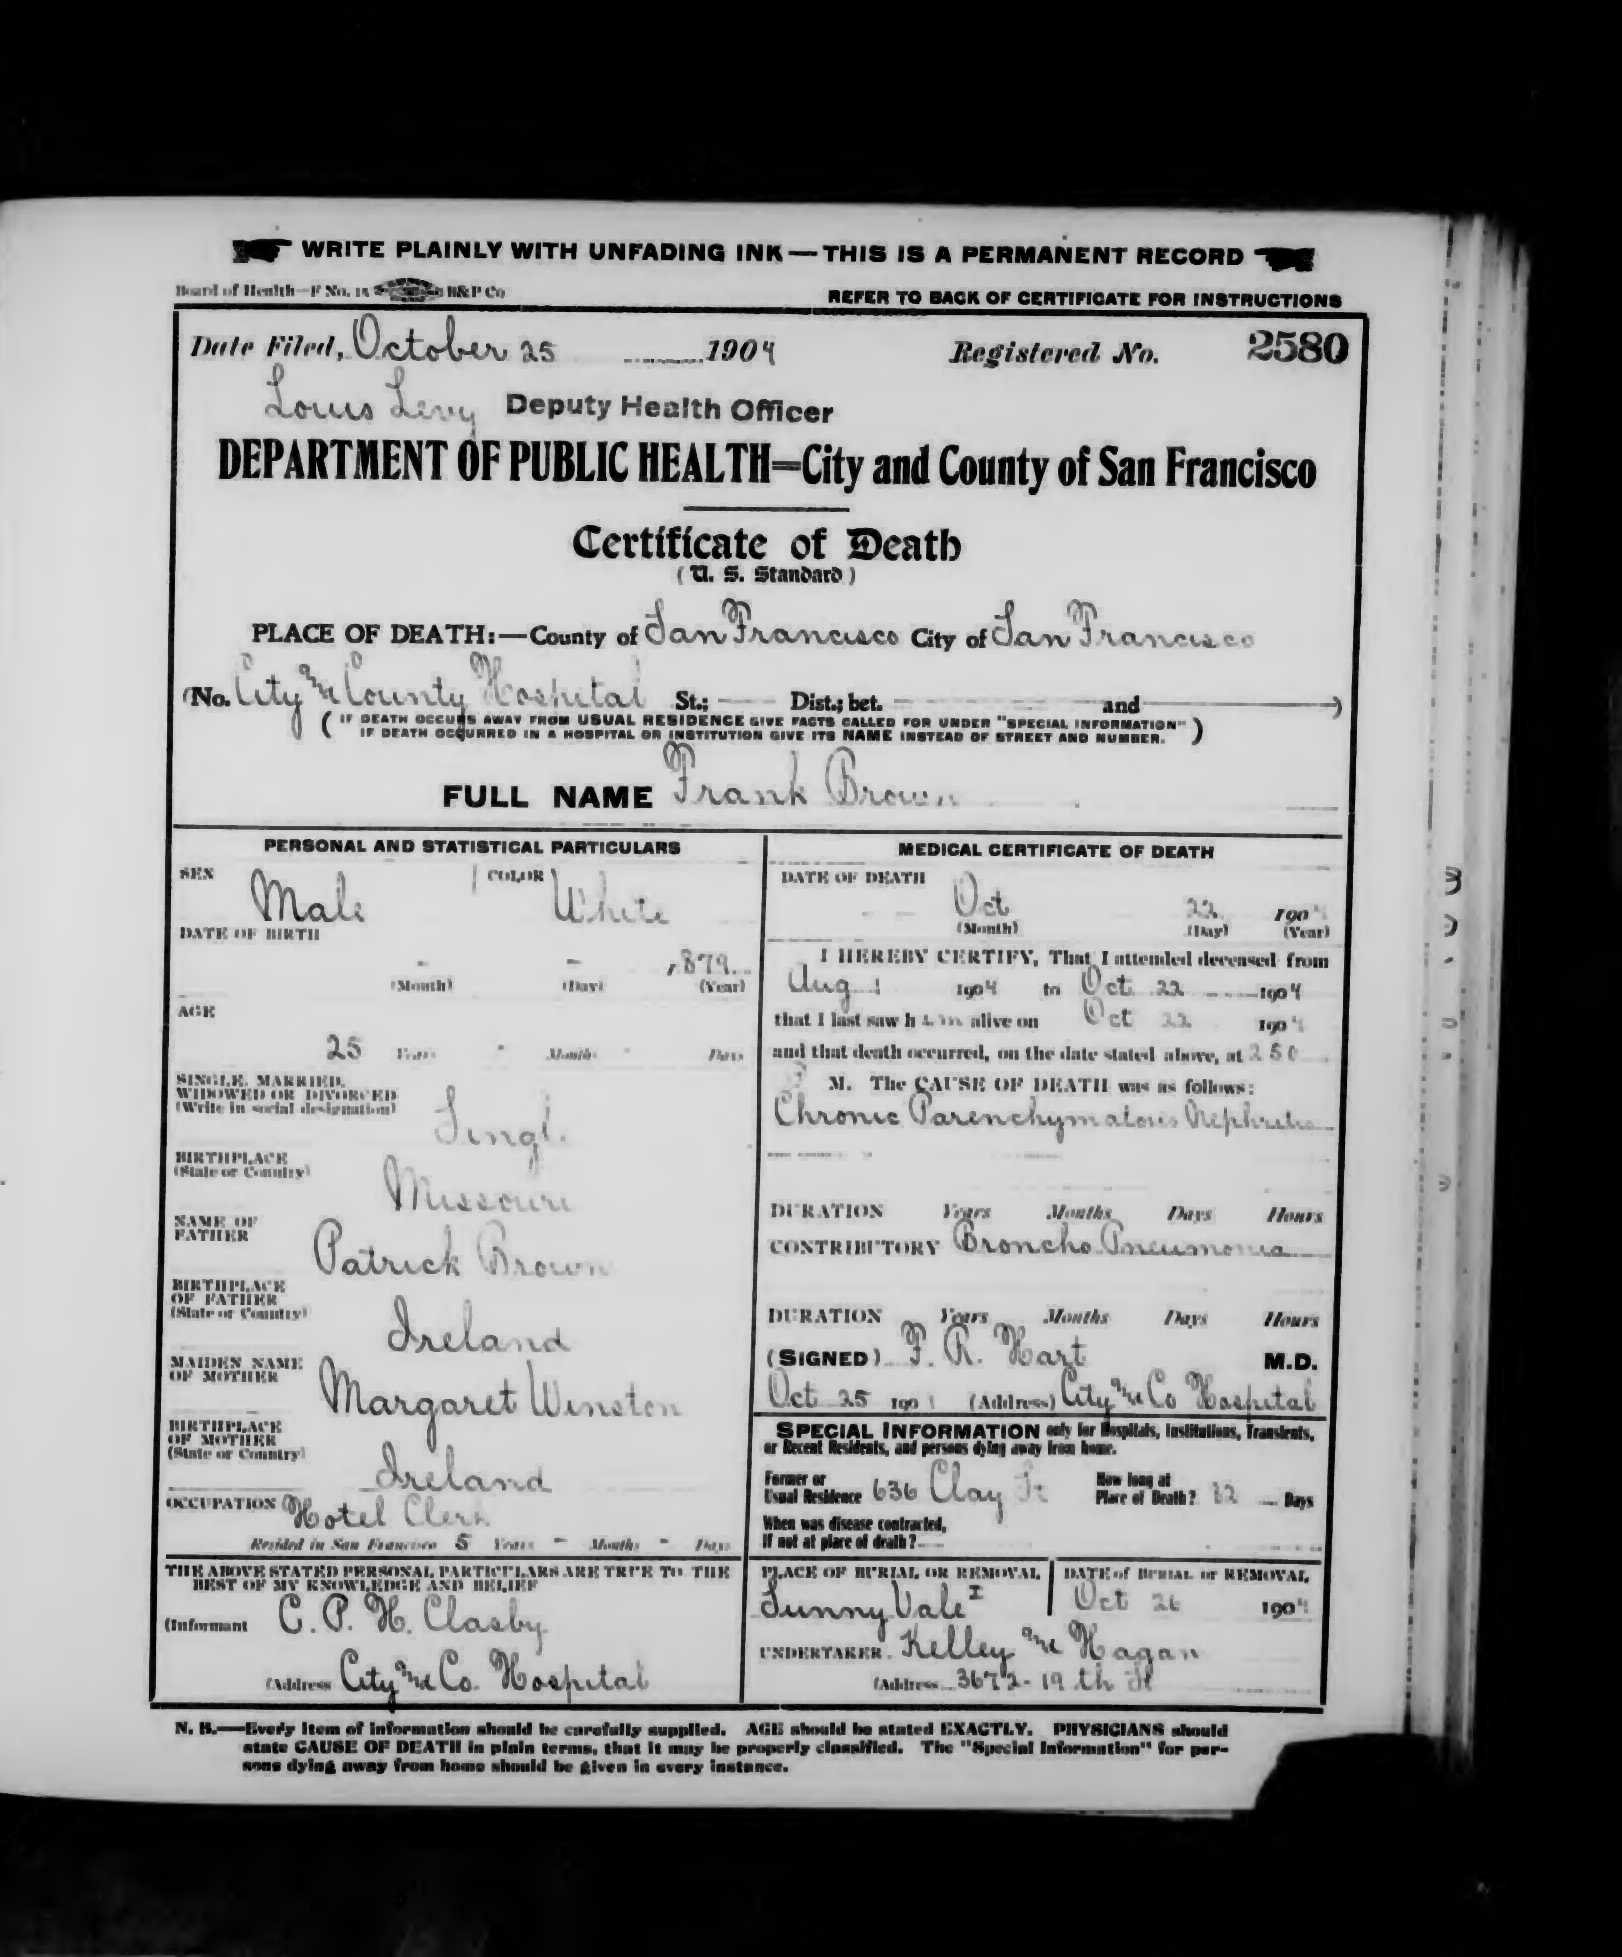 WRITE PLAINLY WITH UNFADING INK — THIS IS A PERMANENT RECORD
Board of Health—F No. 15 B&P Co
REFER TO BACK OF CERTIFICATE FOR INSTRUCTIONS
Date Filed, October 25 1904 Registered No. 2580
Louis Levy Deputy Health Officer
DEPARTMENT OF PUBLIC HEALTH=City and County of San Francisco
Certificate of Death
(U. S. Standard)
PLACE OF DEATH:—County of San Francisco City of San Francisco
(No. City and County Hospital St.; Dist.; bet. and )
(IF DEATH OCCURS AWAY FROM USUAL RESIDENCE GIVE FACTS CALLED FOR UNDER "SPECIAL INFORMATION"
IF DEATH OCCURRED IN A HOSPITAL OR INSTITUTION GIVE ITS NAME INSTEAD OF STREET AND NUMBER.)
FULL NAME Frank Brown
PERSONAL AND STATISTICAL PARTICULARS
SEX Male COLOR White
DATE OF BIRTH
- - 1879
(Month) (Day) (Year)
AGE
25 Years - Months - Days
SINGLE, MARRIED,
WIDOWED OR DIVORCED
(Write in social designation)
Singl.
BIRTHPLACE
(State or Country)
Missouri
NAME OF
FATHER
Patrick Brown
BIRTHPLACE
OF FATHER
(State or Country)
Ireland
MAIDEN NAME
OF MOTHER
Margaret Winston
BIRTHPLACE
OF MOTHER
(State or Country)
Ireland
OCCUPATION Hotel Clerk
Resided in San Francisco 5 Years - Months - Days
THE ABOVE STATED PERSONAL PARTICULARS ARE TRUE TO THE
BEST OF MY KNOWLEDGE AND BELIEF
(Informant C. P. H. Clasby
(Address City and Co. Hospital
MEDICAL CERTIFICATE OF DEATH
DATE OF DEATH
Oct 22 1904
(Month) (Day) (Year)
I HEREBY CERTIFY, That I attended deceased from
Aug 1 1904 to Oct 22 1904
that I last saw him alive on Oct 22 1904
and that death occurred, on the date stated above, at 2 50
M. The CAUSE OF DEATH was as follows:
Chronic Parenchymatous Nephritis
DURATION Years Months Days Hours
CONTRIBUTORY Broncho Pneumonia
DURATION Years Months Days Hours
(SIGNED) F. R. Hart M.D.
Oct 25 190 (Address) City and Co Hospital
SPECIAL INFORMATION only for Hospitals, Institutions, Transients,
or Recent Residents, and persons dying away from home.
Former or
Usual Residence 636 Clay St
How long at
Place of Death? Days
When was disease contracted,
If not at place of death?
PLACE OF BURIAL OR REMOVAL
Sunny Vale I
DATE of BURIAL or REMOVAL
Oct 26 1904
UNDERTAKER Kelley and Hagan
(Address 3672-19th St
N. B.—Every item of information should be carefully supplied. AGE should be stated EXACTLY. PHYSICIANS should
state CAUSE OF DEATH in plain terms, that it may be properly classified. The "Special Information" for per-
sons dying away from home should be given in every instance.